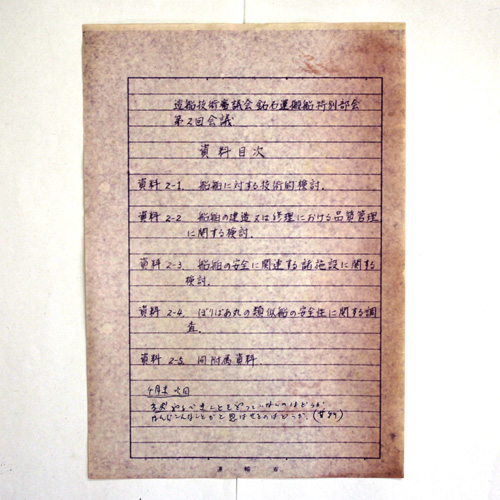 造船技術審議会鉱石運搬船特別部会
第2回会議
資料目次
資料 2-1. 船舶に対する技術的検討.
資料 2-2 船舶の建造又は修理における品質管理
に関する検討.
資料 2-3. 船舶の安全に関連する諸施設に関する
検討.
資料 2-4. ぼりばあ丸の類似船の安全性に関する調
査.
資料 2-5. 同附属資料.
運輸省